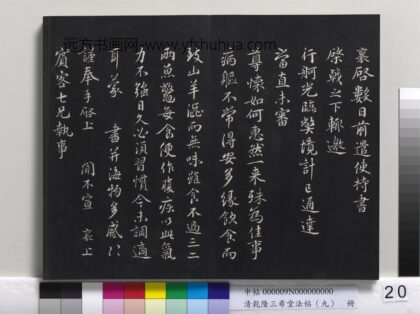 远方书画 www.yfshuhua.com
襄啓數日前遣使持書
棨戟之下輙邀
行舸光臨弊境計已通達
當直未審
尊懷如何惠然一來殊爲佳事
病軀不常得安多緣飲食而
致山羊澀而無味雖食不過三二
兩魚鼈每食便作腹疾以此氣
力不強日久必須習慣今未調適
耳蒙 書并海物多感〻
謹奉手啓上 聞不宣 襄上
賓客七兄執事
中帖 000009N000000000
清乾隆三希堂法帖（九） 冊
20